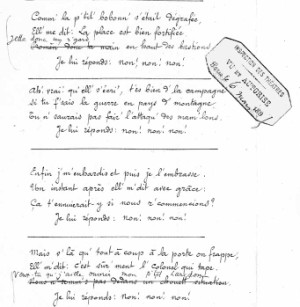 Comm' la p'tit' bobonn' s'était dégrafée,
Ell' me dit: La place est bien fortifiée
donc ma
en haut des bastions!
Je lui réponds: non! non! non!
INSPECTION DES THÉATRES
VU ET AUTORISÉ
Paris le 6 Mars
Ah! vrai! qu'ell' s'écri', t'es bien d'la campagne
Si tu f'sais la guerre en pays d'montagne
Tu n'saurais pas faire l'attaqu' des mam'lons,
Je lui réponds: non! non! non!
Enfin j'm'enhardis et puis je l'embrasse.
Un instant après ell' m'dit avec grâce:
Ça t'ennuierait-y si nous r'commencions?
Je lui réponds: non! non! non!
Mais v'là qu'tout à coup à la porte on frappe,
Ell' m'dit: c'est sûr'ment l'colonel qui tape.
ouvrir mon
dans un situation,
Je lui réponds: non! non! non!